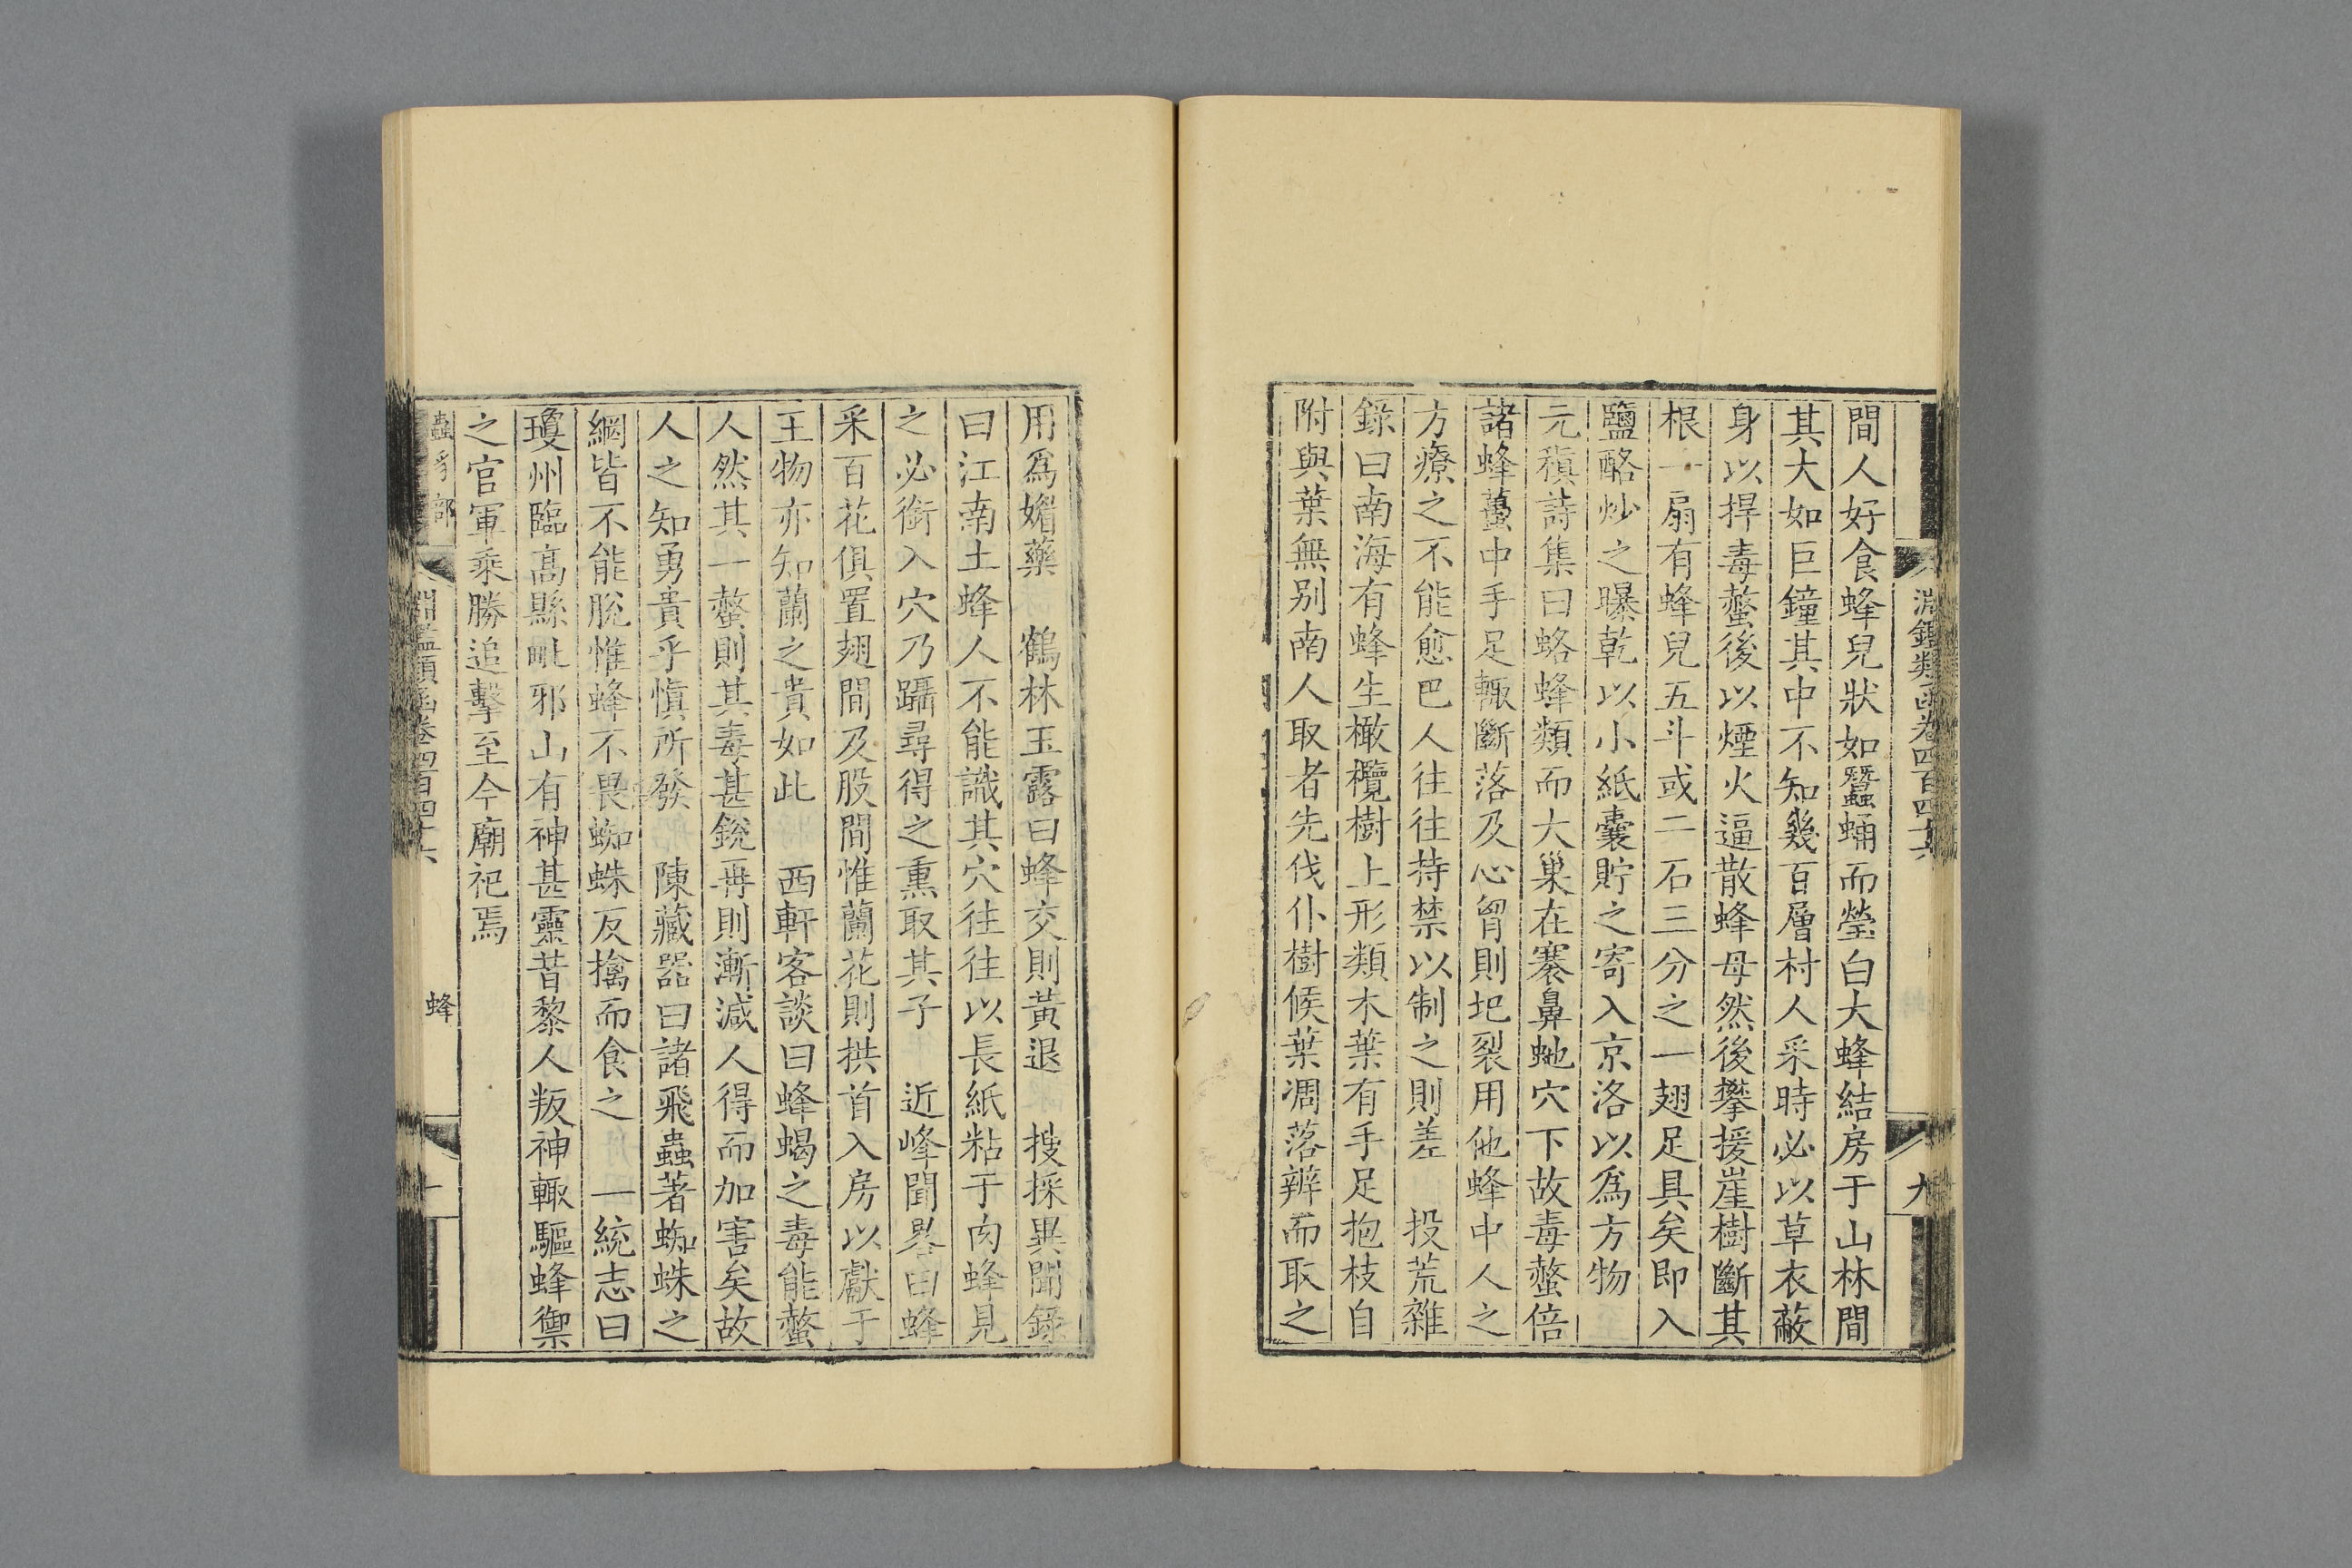 淵鑑類函卷四百四十六
九
間人好食蜂兒狀如蠶蛹而瑩白大蜂結房于山林間
其大如巨鐘其中不知幾百層村人采時必以草衣蔽
身以捍毒螫後以煙火逼散蜂母然後攀援崖樹斷其
根一扇有蜂兒五斗或二石三分之一翅足具矣即入
鹽酪炒之曝乾以小紙囊貯之寄入京洛以爲方物
元稹詩集曰蛒蜂類而大巢在褰鼻虵穴下故毒螫倍
諸蜂蠆中手足輒斷落及心胷則圯裂用他蜂中人之
方療之不能愈巴人往往持禁以制之則差　投荒雜
錄曰南海有蜂生橄欖樹上形類木葉有手足抱枝自
附與葉無别南人取者先伐仆樹候葉凋落辨而取之
用爲媚藥　鶴林玉露曰蜂交則黃退　搜採異聞錄
曰江南土蜂人不能識其穴往往以長紙粘于肉蜂見
之必銜入穴乃躡尋得之熏取其子　近峰聞畧曰蜂
采百花俱置翅間及股間惟蘭花則拱首入房以獻于
王物亦知蘭之貴如此　西軒客談曰蜂蝎之毒能螫
人然其一螫則其毒甚銳再則漸減人得而加害矣故
人之知勇貴乎慎所發　陳藏器曰諸飛蟲著蜘蛛之
網皆不能脫惟蜂不畏蜘蛛反擒而食之　一統志曰
瓊州臨高縣毗邪山有神甚靈昔黎人叛神輒驅蜂禦
之官軍乘勝追擊至今廟祀焉
蟲豸部
淵鑑類函卷四百四十六
蜂